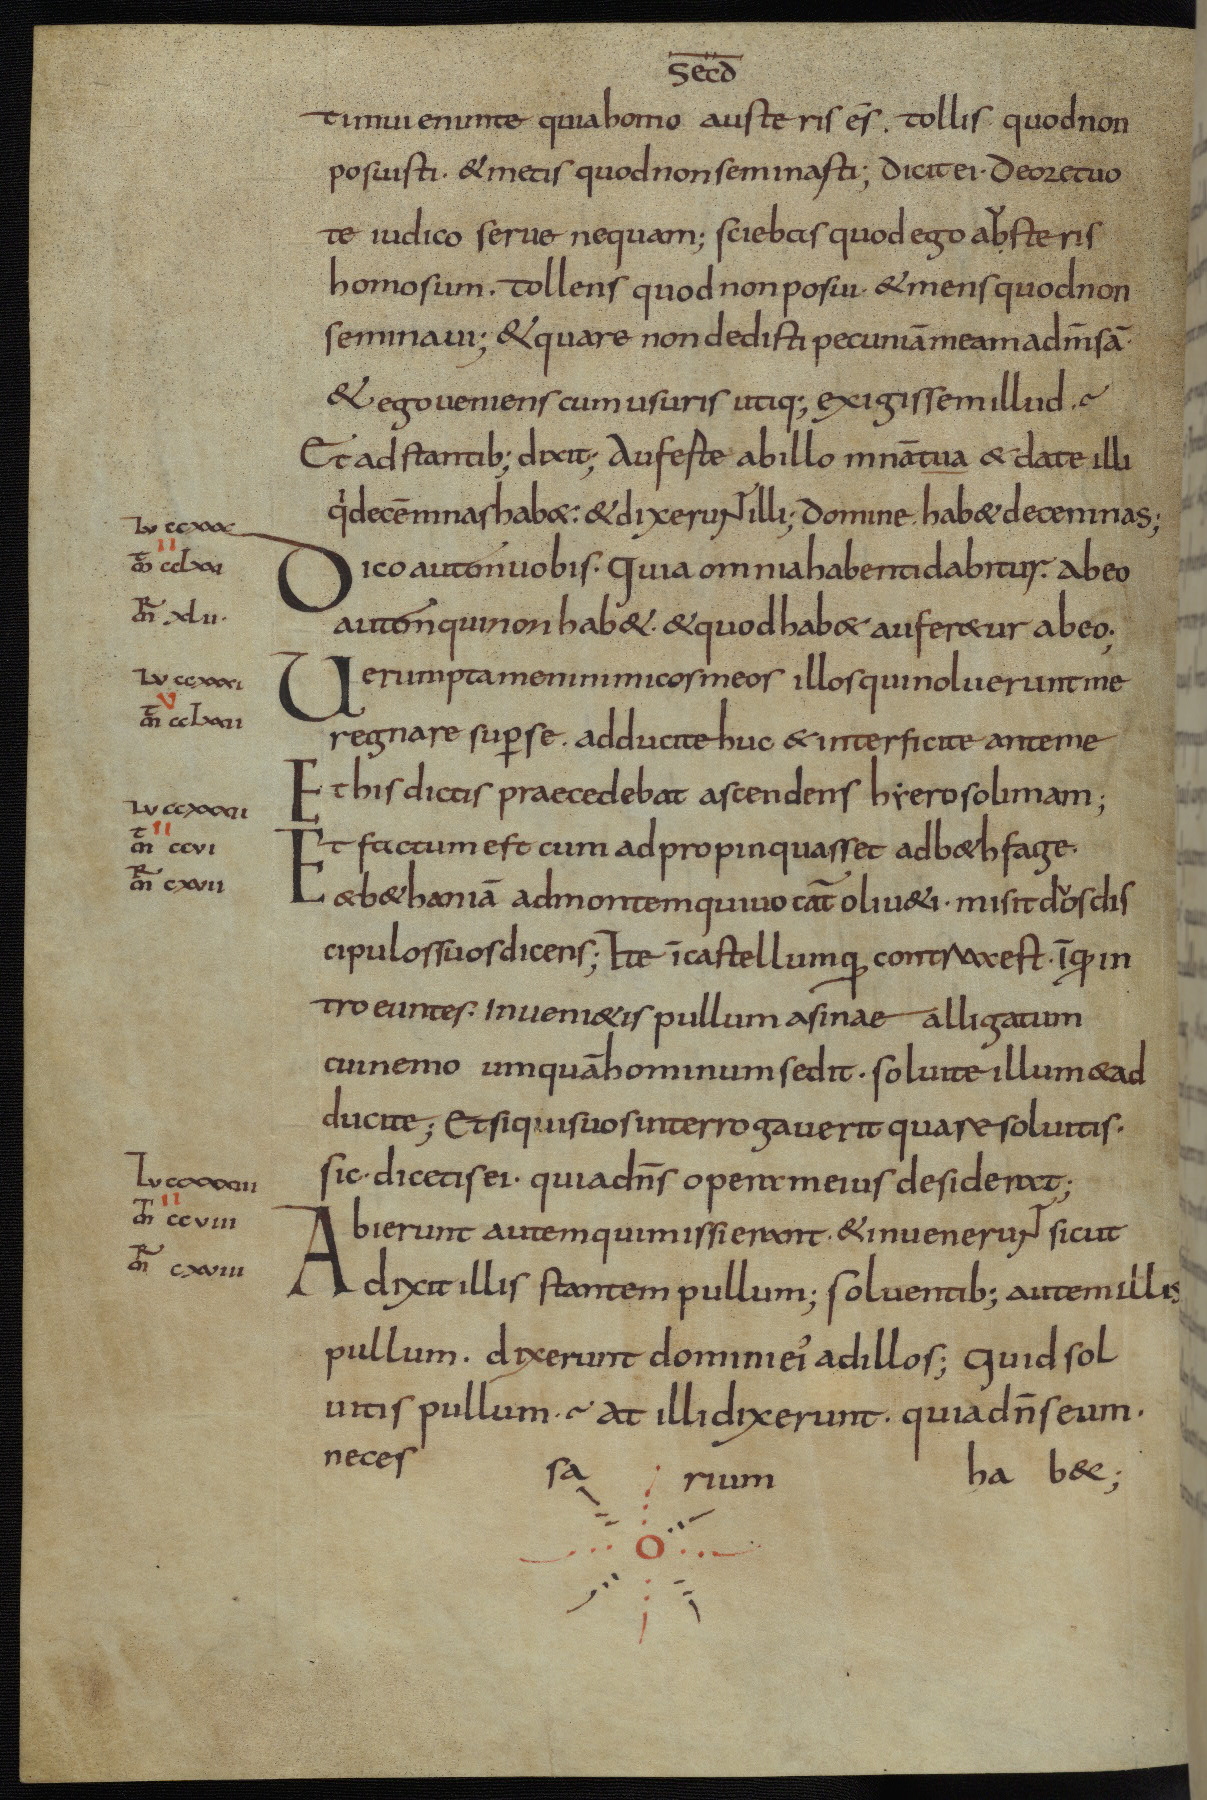 Secd
timui enim te quia homo austeris ēs. tollis quod non
posuisti. & metis quod non seminasti; Dicit ei. De ore tuo
te iudico serue nequam; sciebas quod ego absteris
homo sum. tollens quod non posui. & metens quod non
seminaui; & quare non dedisti pecuniā meam ad m̄sā.
& ego ueniens cum usuris utiq; exigissem illud.
Et adstantib; dixit; Auferte ab illo mnā tua & date illi
q̇ decē mnas hab&. & dixerunt illi; Domine hab& decem mnas;
Lu ccxxx
Dico autem uobis. Quia omni habenti dabitur. Ab eo
II
m̄t cclxxi
autem qui non hab&. & quod hab& aufer&ur ab eo;
m̄R xlii.
Lu ccxxxi
Uerumptamen inimicos meos illos qui noluerunt me
V
m̄t cclxxii
regnare sup se. adducite huc & interficite ante me
Et his dictis praecedebat ascendens hyerosolimam;
Lu ccxxxii
II
m̄t ccvi
Et factum est cum adpropinquasset ad b&hfage.
m̄R cxvii
& b&haniā ad montem qui uocāt oliu&i. misit duos dis
cipulos suos dicens; Ite ī castellum q contra est. Īq in
troeuntes. Inueni&is pullum asinae alligatum
cui nemo umquā hominum sedit. soluite illum & ad
ducite; Et si quis uos interrogauerit quare soluitis.
Lu ccxxxiii
sic. dicetis ei. quia dn̄s opera meius desiderat;
II
m̄t ccviii
Abierunt autem qui missi erant. & inuenerunt sicut
m̄R cxviii
dixit illis stantem pullum; soluentib; autem illis
pullum. dixerunt domini ei ad illos; Quid sol
uitis pullum. At illi dixerunt. quia dn̄s eum.
neces sa rium ha b&;